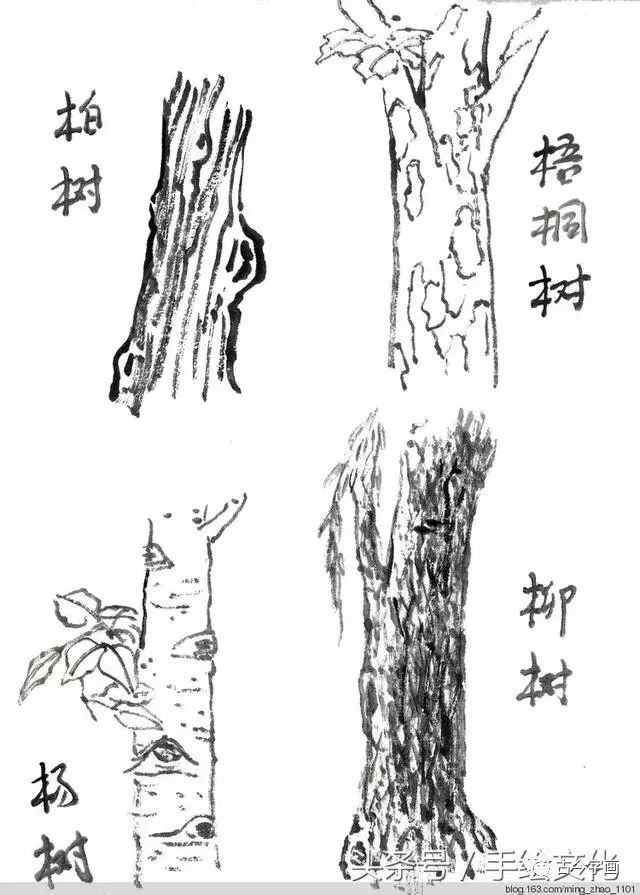 柏树
梧桐树
柳树
杨树
头条号/手绘文化
古今字画
blog.163.com/ming_zhao_1101